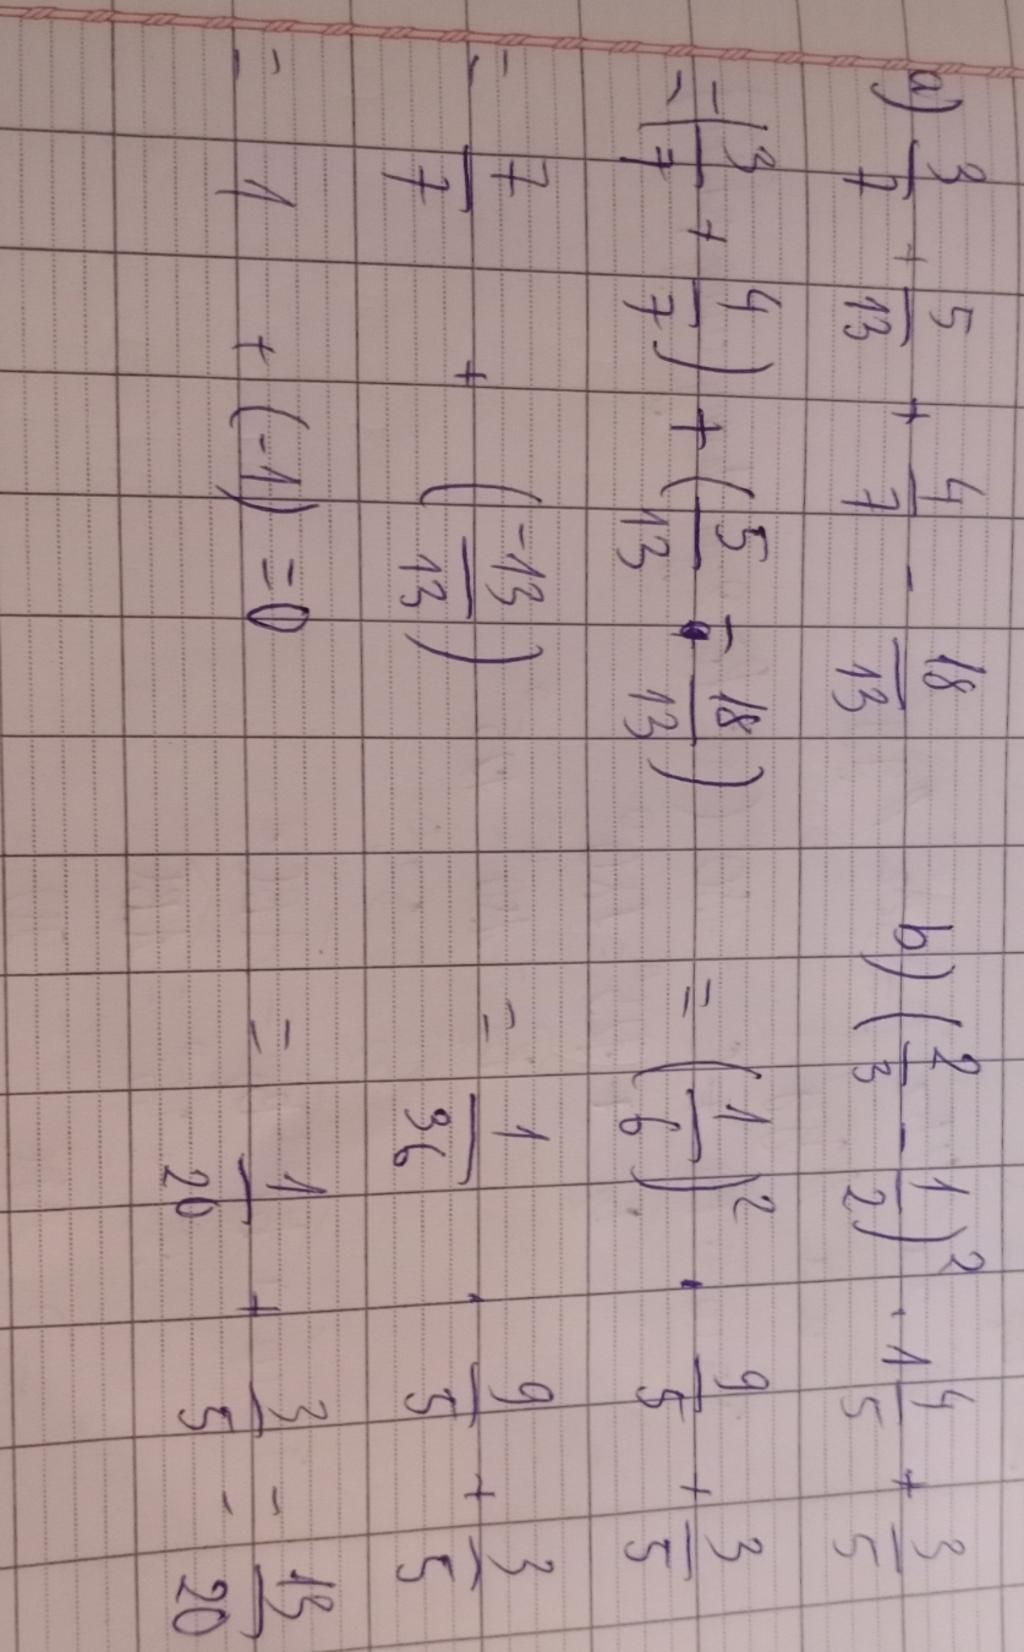 a) 3/7 + 5/13 + 4/7 - 18/13
= (3/7 + 4/7) + (5/13 - 18/13)
= 7/7 + (-13/13)
= 1 + (-1) = 0
b) (2/3 - 1/2)² . 1 4/5 + 3/5
= (1/6)² . 9/5 + 3/5
= 1/36 . 9/5 + 3/5
= 1/20 + 3/5 = 13/20